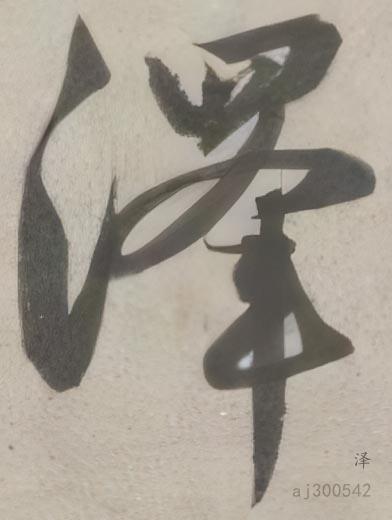 澤
泽
aj300542